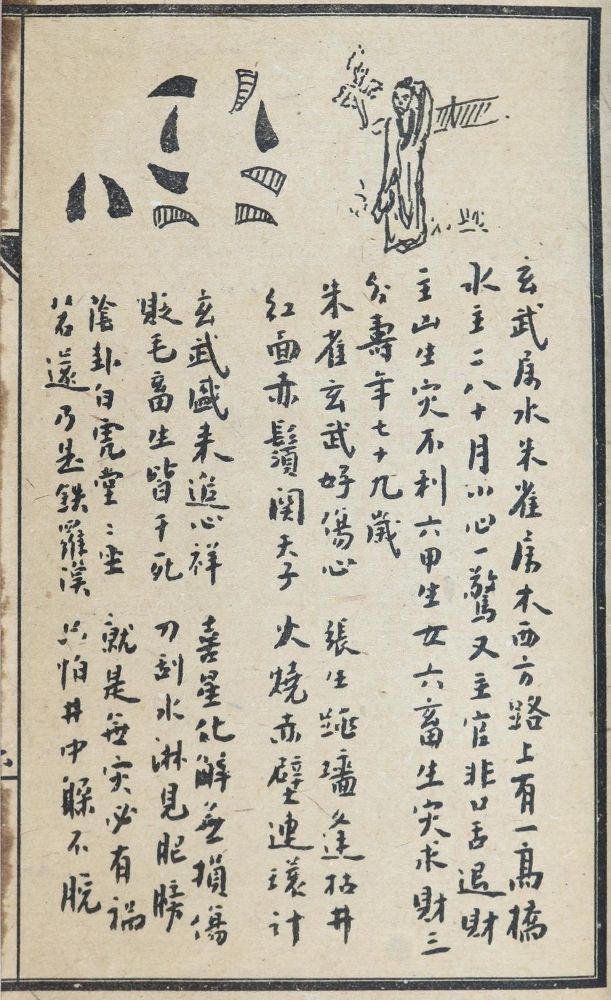 玄武属水朱雀属木西方路上有一高橋
水主二八十月小心一驚又主官非口舌退財
主山生灾不利六甲生女六畜生灾求財三
分壽年七十九歲
朱雀玄武好傷心 張生跳墻逢枯井
红面赤鬚関天子 火燒赤壁連環計
玄武盛来進心祥 喜星化解無損傷
毛畜生皆千死 刀刮水淋見肥膀
陰卦白虎堂〻坐 就是無灾必有禍
若還乃是鉄羅漢 只怕井中躲不脱